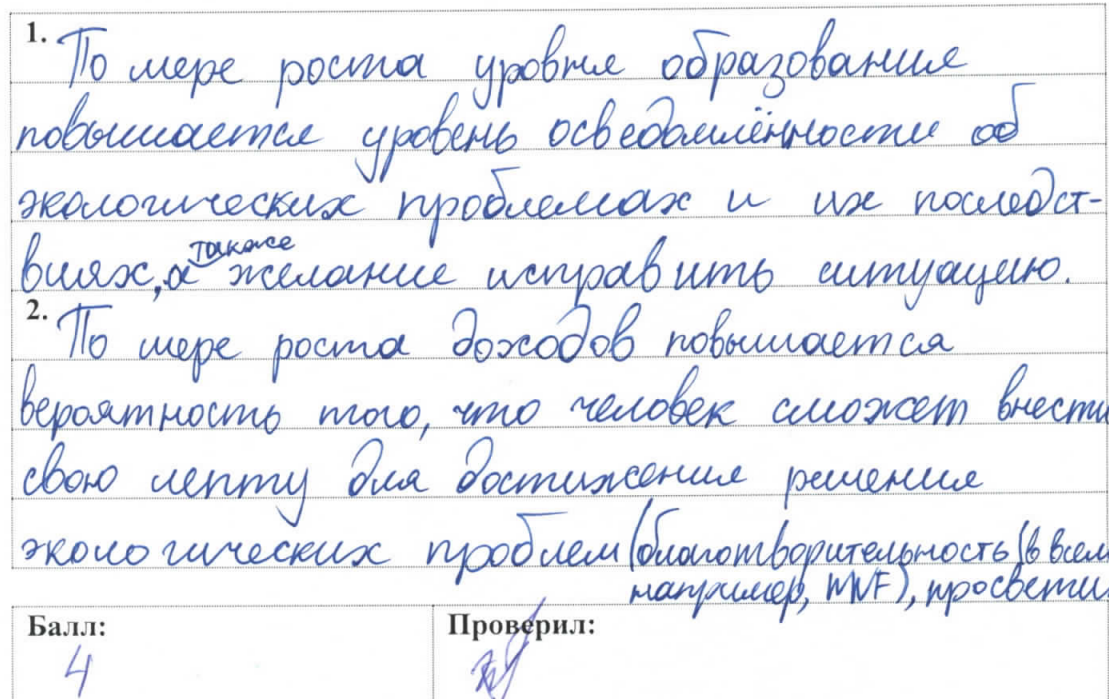 1. По мере роста уровня образования
повышается уровень осведомлённости об
экологических проблемах и их последст-
виях, а также желание исправить ситуацию.
2. По мере роста доходов повышается
вероятность того, что человек сможет внести
свою лепту для достижения решения
экологических проблем (благотворительность (в
например, WWF),
Балл: Проверил:
4